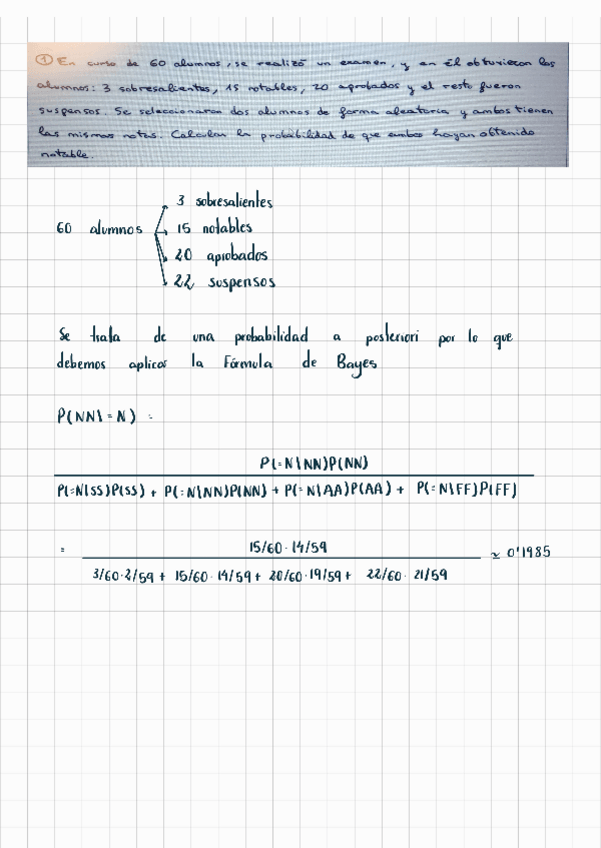 ① En curso de 60 alumnos, se realizó un examen, y en él obtuvieron los
alumnos: 3 sobresalientes, 15 notables, 20 aprobados y el resto fueron
suspensos. Se seleccionaron dos alumnos de forma aleatoria y ambos tienen
las mismas notas. Calcular la probabilidad de que ambos hayan obtenido
notable.
3 sobresalientes
60 alumnos
15 notables
20 aprobados
22 suspensos
Se trata de una probabilidad a posteriori por lo que
debemos aplicar la Fórmula de Bayes
P(NN\=N) =
P(=N\NN)P(NN)
P(=N\SS)P(SS) + P(=N\NN)P(NN) + P(=N\AA)P(AA) + P(=N\FF)P(FF)
= 15/60 · 14/59 ≃ 0'1985
3/60·2/59 + 15/60·14/59 + 20/60·19/59 + 22/60·21/59